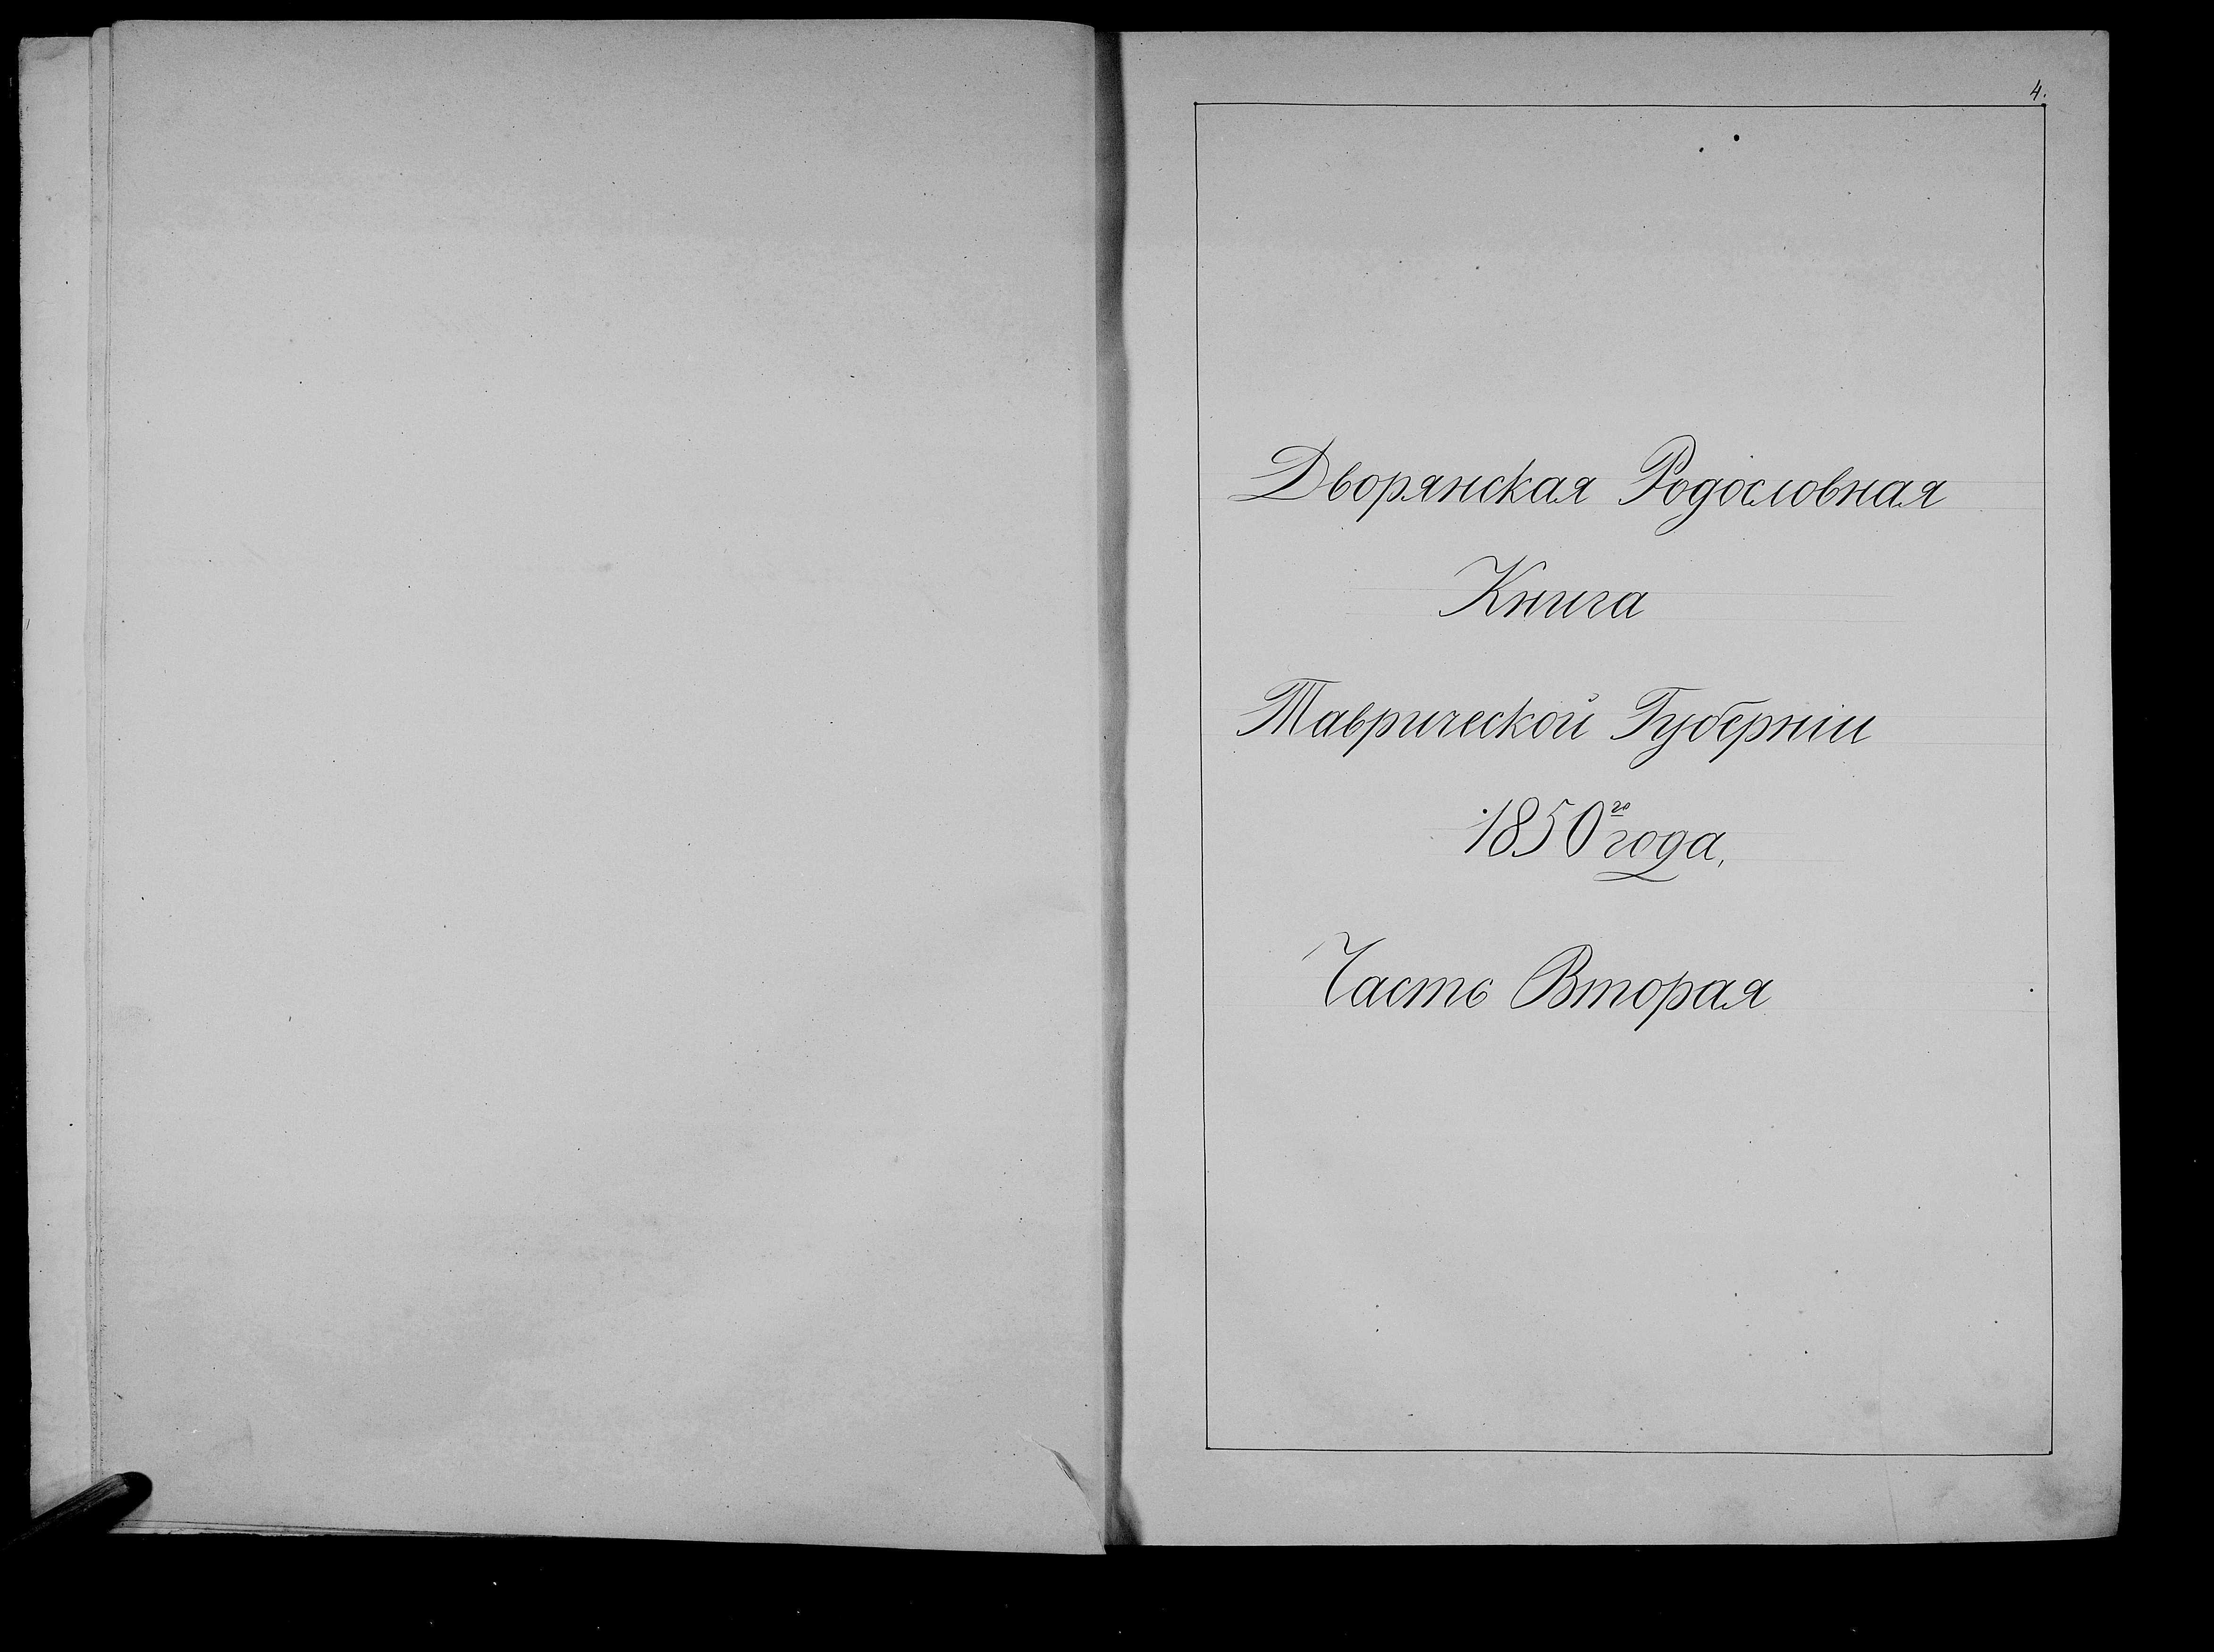 4.
Дворянская Родословная
Книга
Таврической Губерніи
1850го года,
Часть Вторая